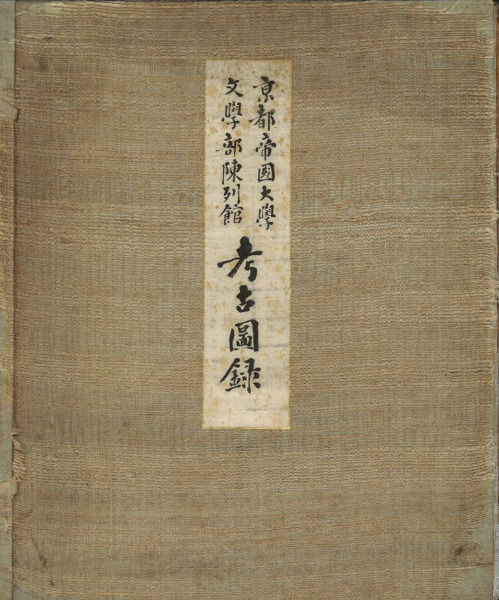 京都帝國大學
文學部陳列館
考古圖録